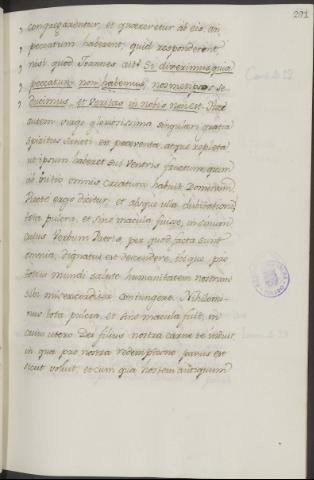 291
congregarentur, et quæreretur ab eis, an
peccatum haberent, quid responderent,
nisi quod Joannes ait: Si dixerimus quia
peccatum non habemus, nosmetipsos se-
ducimus, et veritas in nobis non est. Hæc
autem virgo gloriosissima singulari gratia
Spiritus Sancti est præventa, atque repleta
ut ipsum haberet sui ventris fructum, quem
ab initio omnis creatura habuit Dominum
Recte ergo dicitur, et absque ulla dubitatione
tota pulcra, et sine macula fuisse, in
cuius Verbum Patris, per quod facta sunt
omnia, dignatus est descendere, eo que pro
totius mundi salute humanitatem nostram
sibi misericorditer coniungere. Nihilomi-
nus tota pulcra, et sine macula fuit, in
cuius utero Dei filius nostra carne se induit
in qua pro nostra redemptione parvus est
sicut voluit, et cum qua hostem antiquum